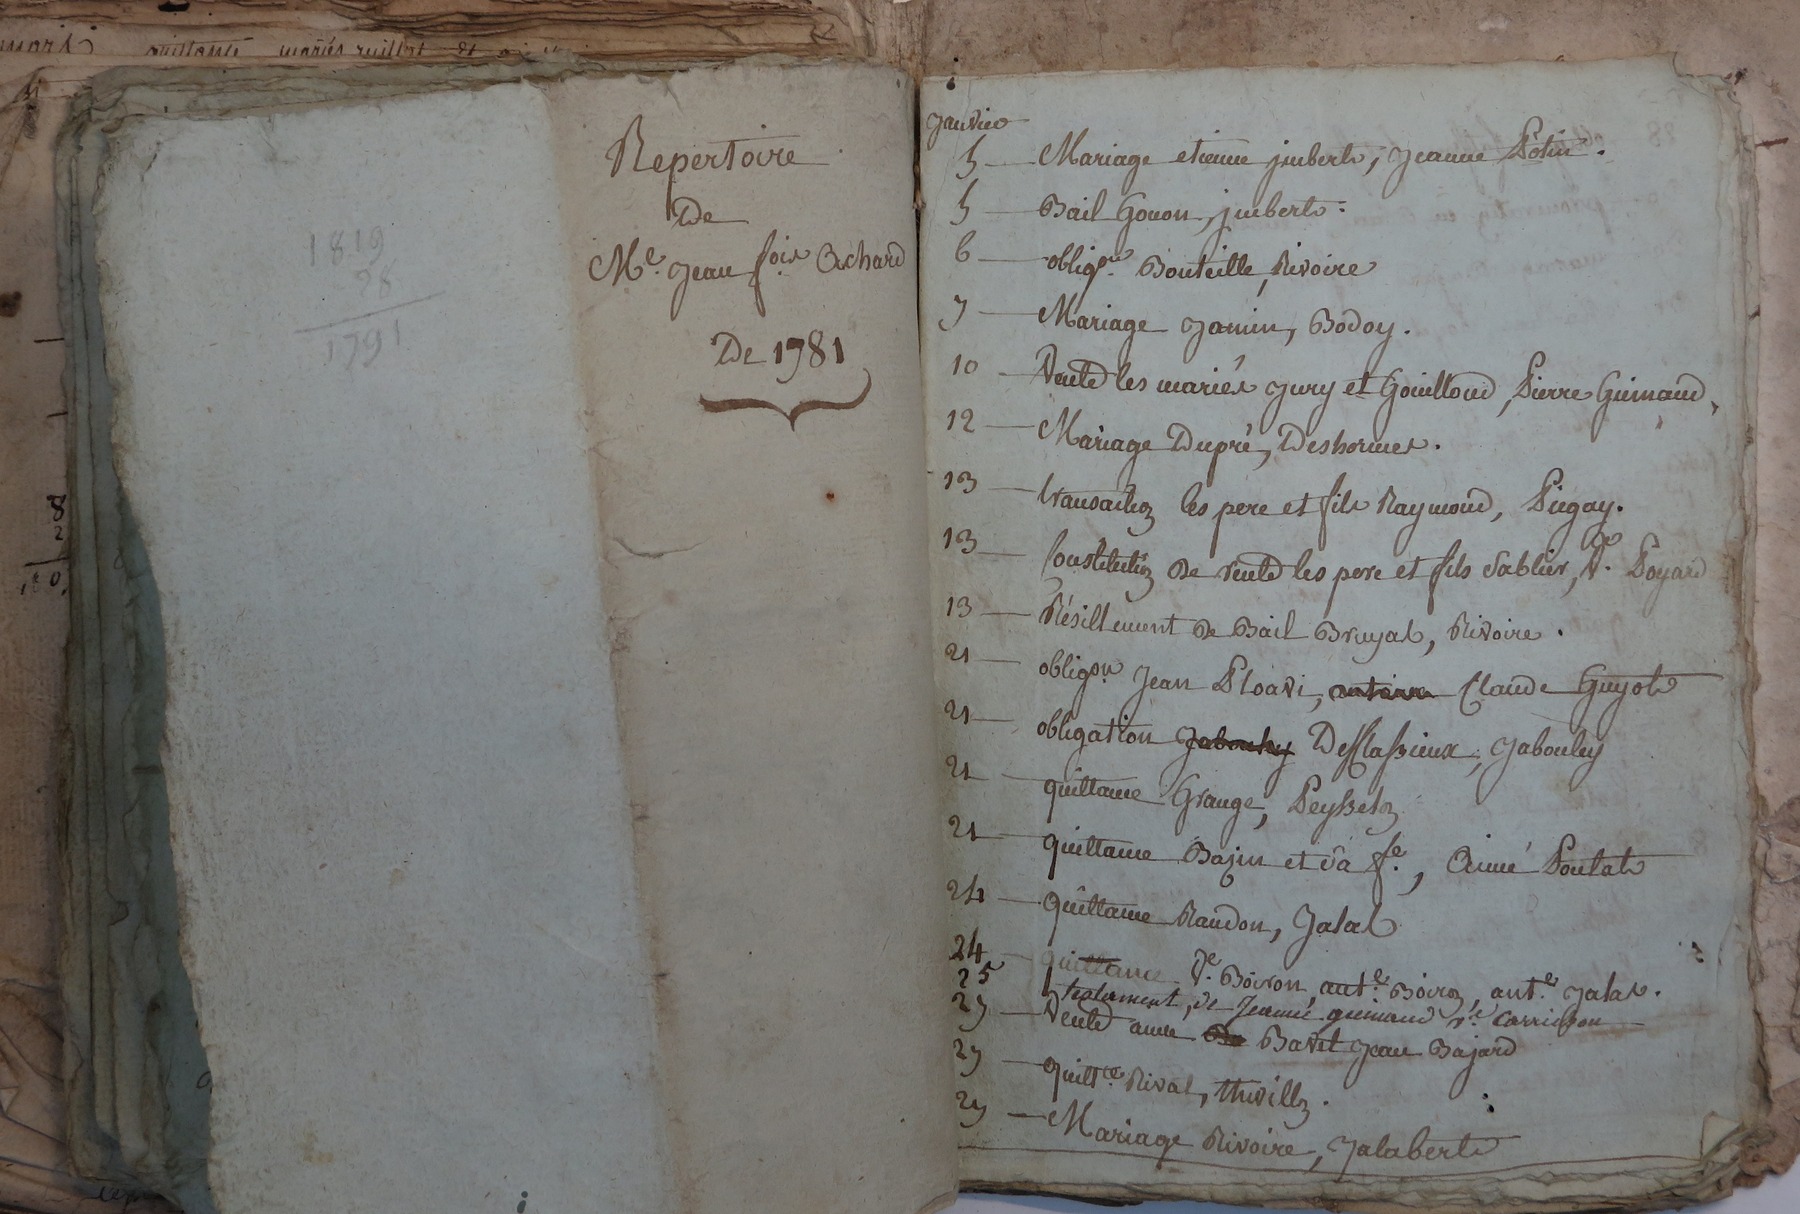 1819
28
1791
Repertoire
De
Me. Jean fois Achard
De 1781
Janvier
5 Mariage etienne jmbert, Jeanne Potin.
5 Bail Gouon, jmbert.
6 obligon. Bouteille, Rivoire
7 Mariage Jamin, Bodoy.
10 Vente les mariés Jury et Gouilloud, Pierre Guimaud,
12 Mariage Dupré, Deshormes.
13 transaction les pere et fils Raymond, Piegay.
13 Constitution de rente les pere et fils Sablier, ve. Poyard
13 Résiliement de Bail Bruyas, Rivoire.
21 obligon. Jean Ploavi, Claude Guyot
21 obligation Jabouley Desflassieux, Jabouley
21 quittance Grange, Peysselon
21 quittance Bajin et sa fe., Aimé Poulat
24 quittance Raudon, Jalas
24 quittance ve. Boiron, ante. Boiron, ante. Jalas.
25 testament de Jeanne guimaud ve. Carrichon
27 Vente anne Bavet Jean Bajard
27 quittce. Rival, thivillon.
27 Mariage Rivoire, Jalabert